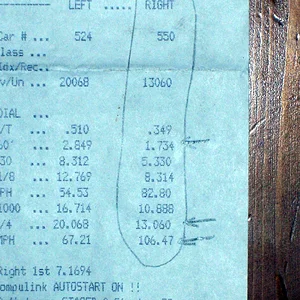 LEFT ..... RIGHT
Car # ... 524 550
lass ...
ldx/Rec..
v/Un ... 20068 13060
DIAL ...
/T ... .510 .349
60' ... 2.849 1.734
30 ... 8.312 5.330
1/8 ... 12.769 8.314
MPH ... 54.53 82.80
1000 ... 16.714 10.888
/4 ... 20.068 13.060
MPH ... 67.21 106.47
Right 1st 7.1694
ompulink AUTOSTART ON !!